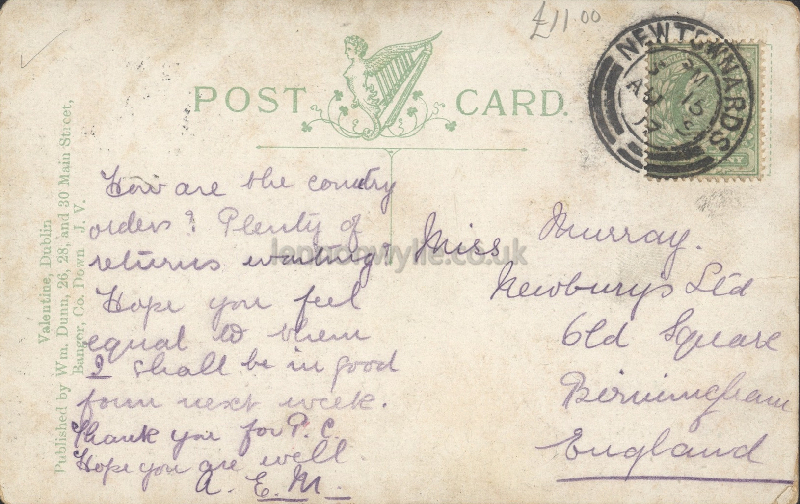 £11.00
POST CARD.
NEWTOWNARDS
AU 15
Valentine, Dublin
Published by Wm. Dunn, 26, 28, and 30 Main Street,
Bangor, Co. Down J. V.
How are the country
orders? Plenty of
returns waiting?
Hope you feel
equal to them
I shall be in good
form next week.
Thank you for P.C.
Hope you are well.
A. E. M.
Miss Murray.
Newburys Ltd
Old Square
Birmingham
England
lennonwylie.co.uk